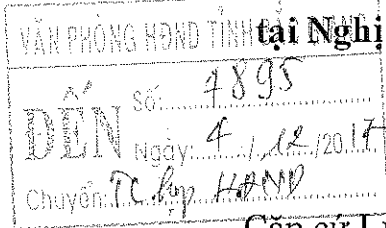 VĂN PHÒNG HĐND TỈNH
tại Nghị
ĐẾN
Số: 4895
Ngày: 4/12/2017
Chuyển: TC họp HĐND
Căn cứ